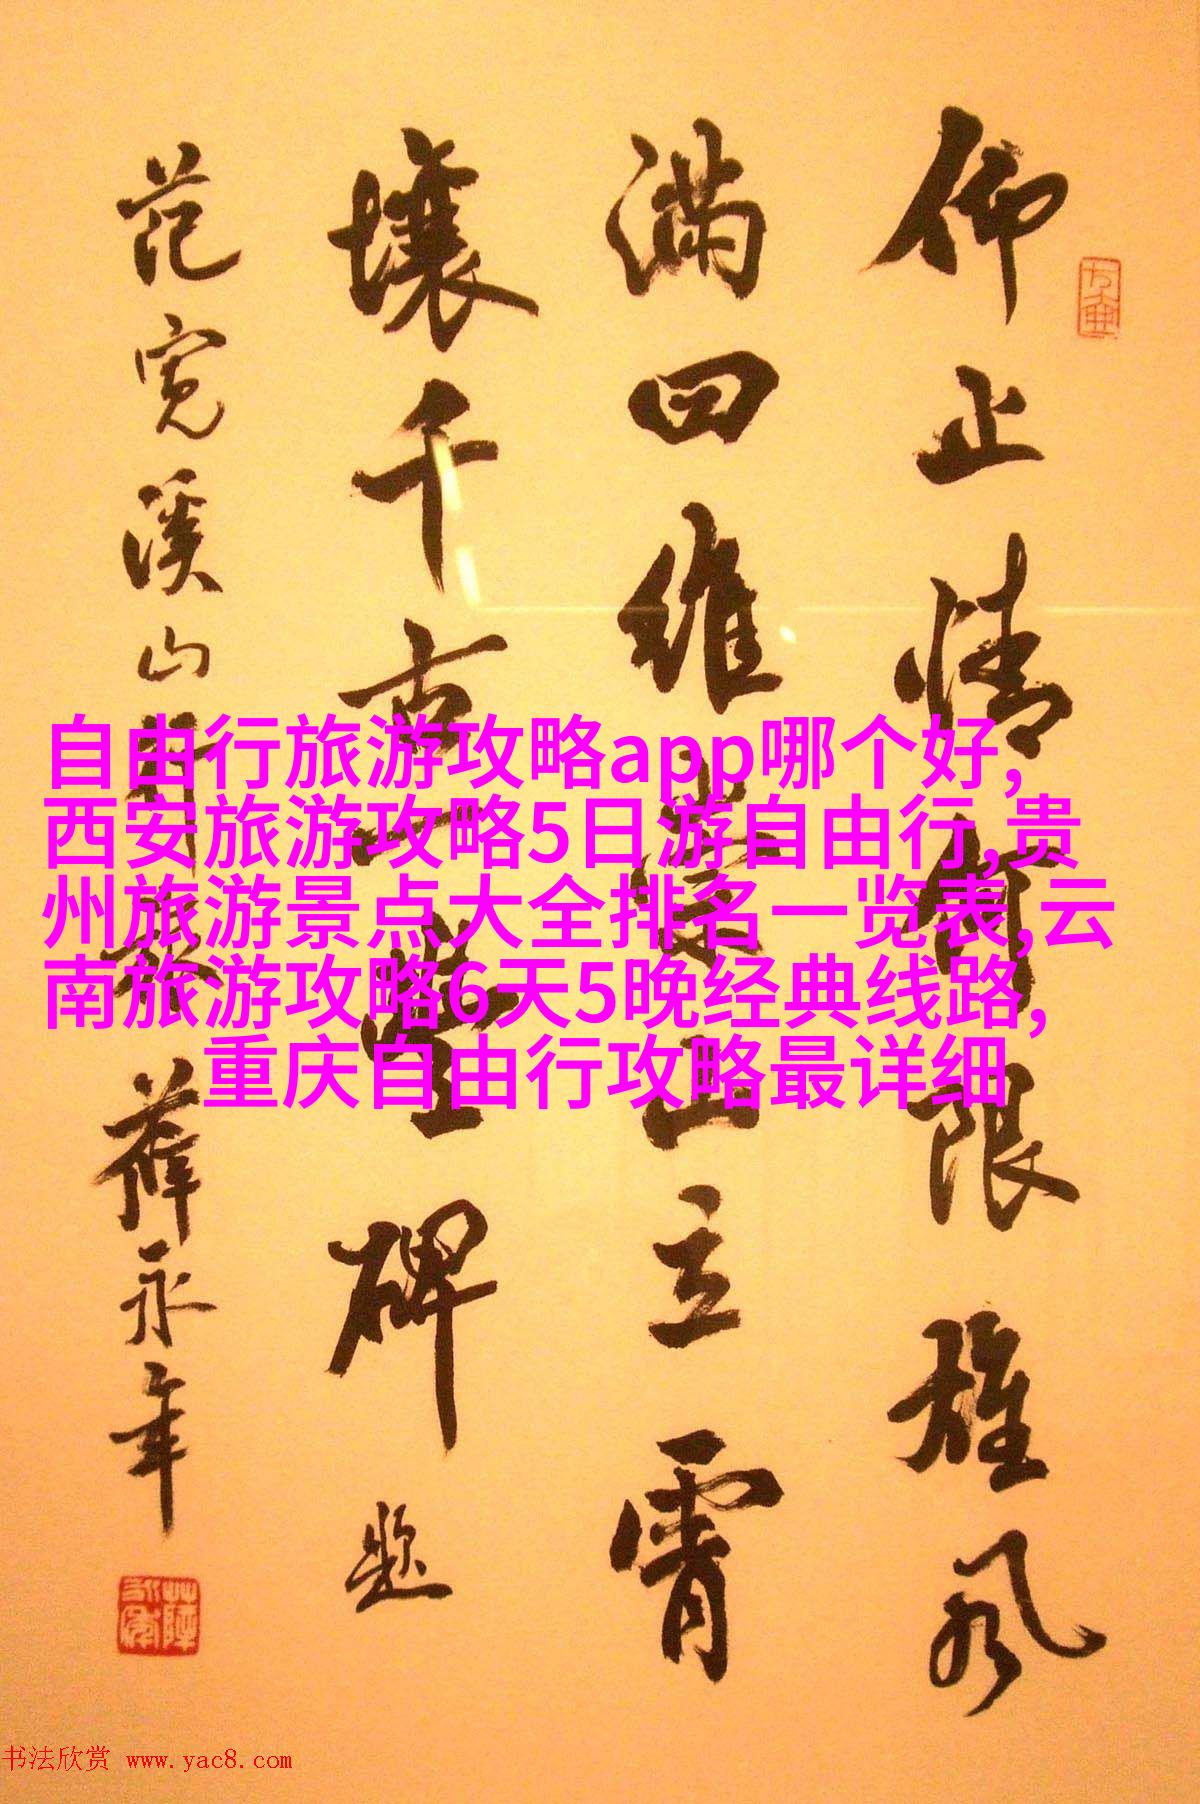 仰止情何限雄风
满四维崇山立霄
壤千古一丰碑
题
范宽溪山行旅 薛永年
自由行旅游攻略app哪个好,
西安旅游攻略5日游自由行,贵
州旅游景点大全排名一览表,云
南旅游攻略6天5晚经典线路,
重庆自由行攻略最详细
书法欣赏 www.yac8.com